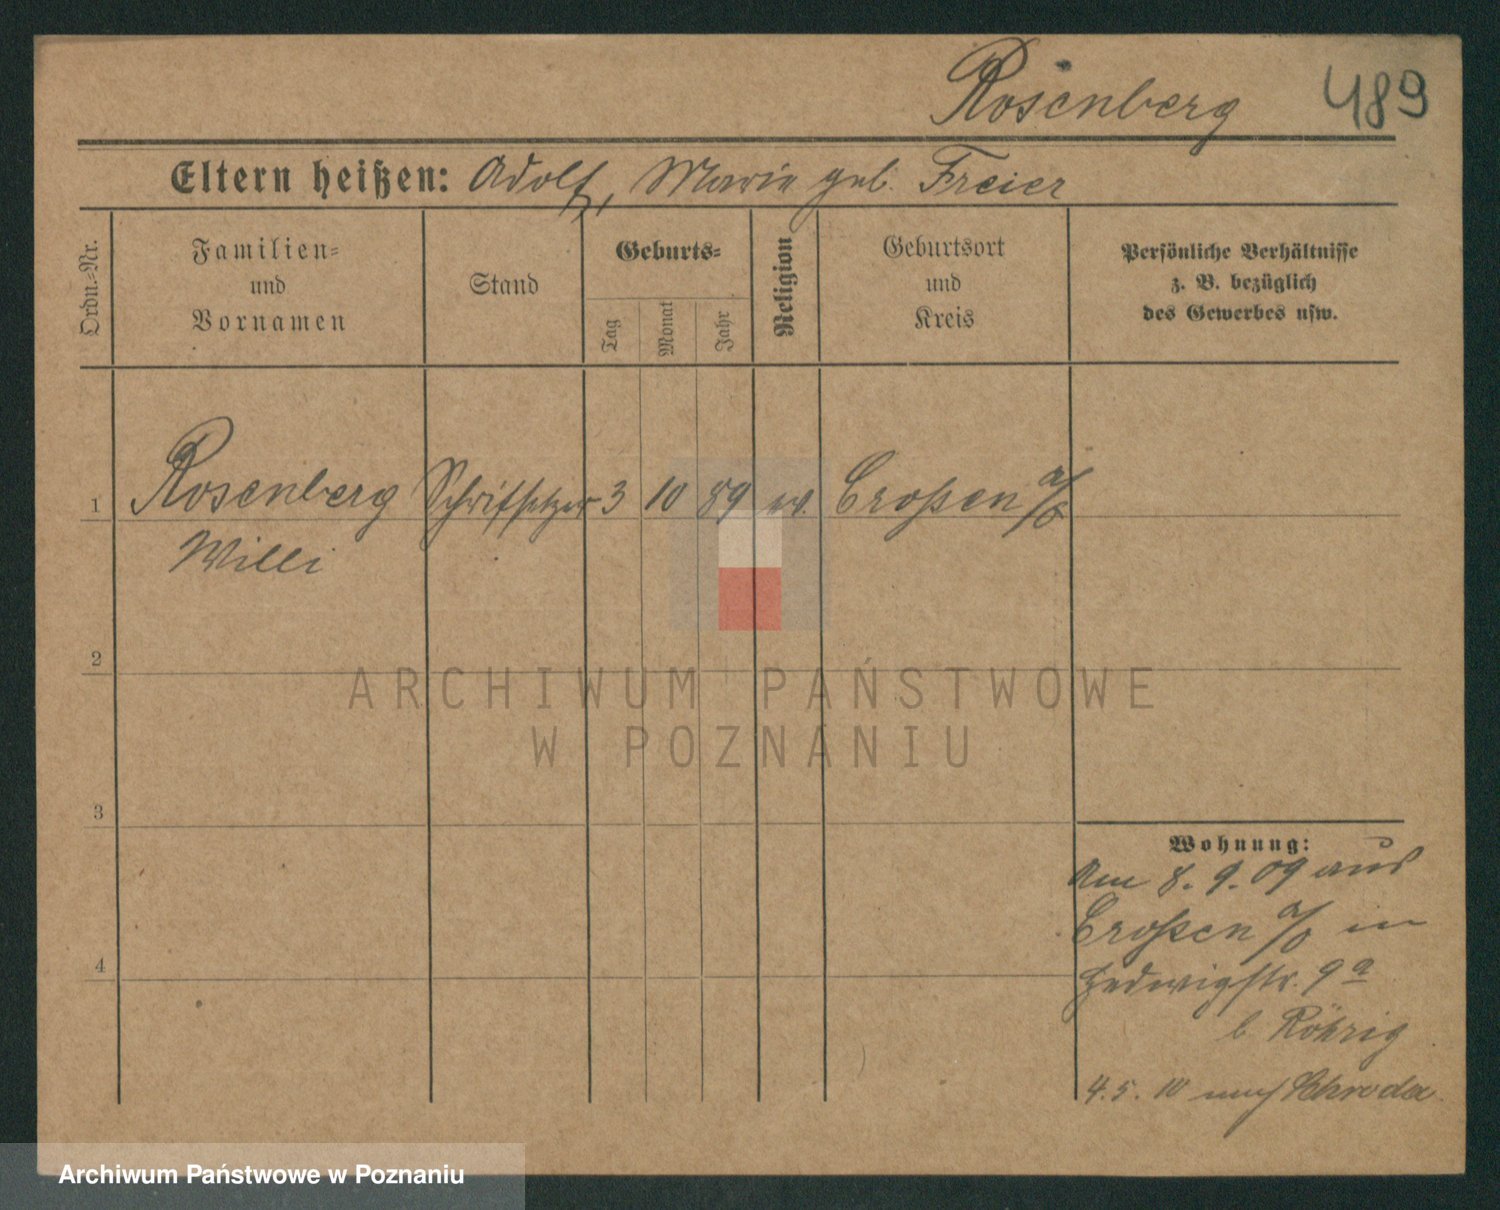 Rosenberg 489
Eltern heißen: Adolf, Marie geb. Freier
Ordn.-Nr.
Familien-
und
Vornamen
Stand
Geburts-
Tag
Monat
Jahr
Religion
Geburtsort
und
Kreis
Persönliche Verhältnisse
z. B. bezüglich
des Gewerbes usw.
1 Rosenberg Schriftsetzer 3 10 89 ev. Croßen a/O
Willi
2
3
4
Wohnung:
Am 8. 9. 09 aus
Croßen a/O in
Hedwigstr. 9a
b Röhrig
4. 5. 10 nach Schroda
ARCHIWUM PAŃSTWOWE
W POZNANIU
Archiwum Państwowe w Poznaniu